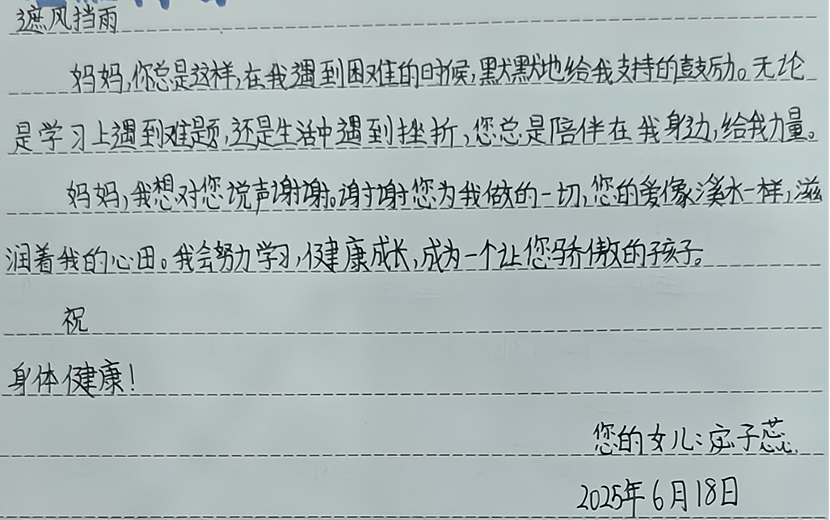 遮风挡雨
妈妈,你总是这样,在我遇到困难的时候,默默地给我支持的鼓励。无论
是学习上遇到难题,还是生活中遇到挫折,您总是陪伴在我身边,给我力量。
妈妈,我想对您说声谢谢。谢谢您为我做的一切,您的爱像溪水一样,滋
润着我的心田。我会努力学习,健康成长,成为一个让您骄傲的孩子。
祝
身体健康!
您的女儿:子蕊
2025年6月18日